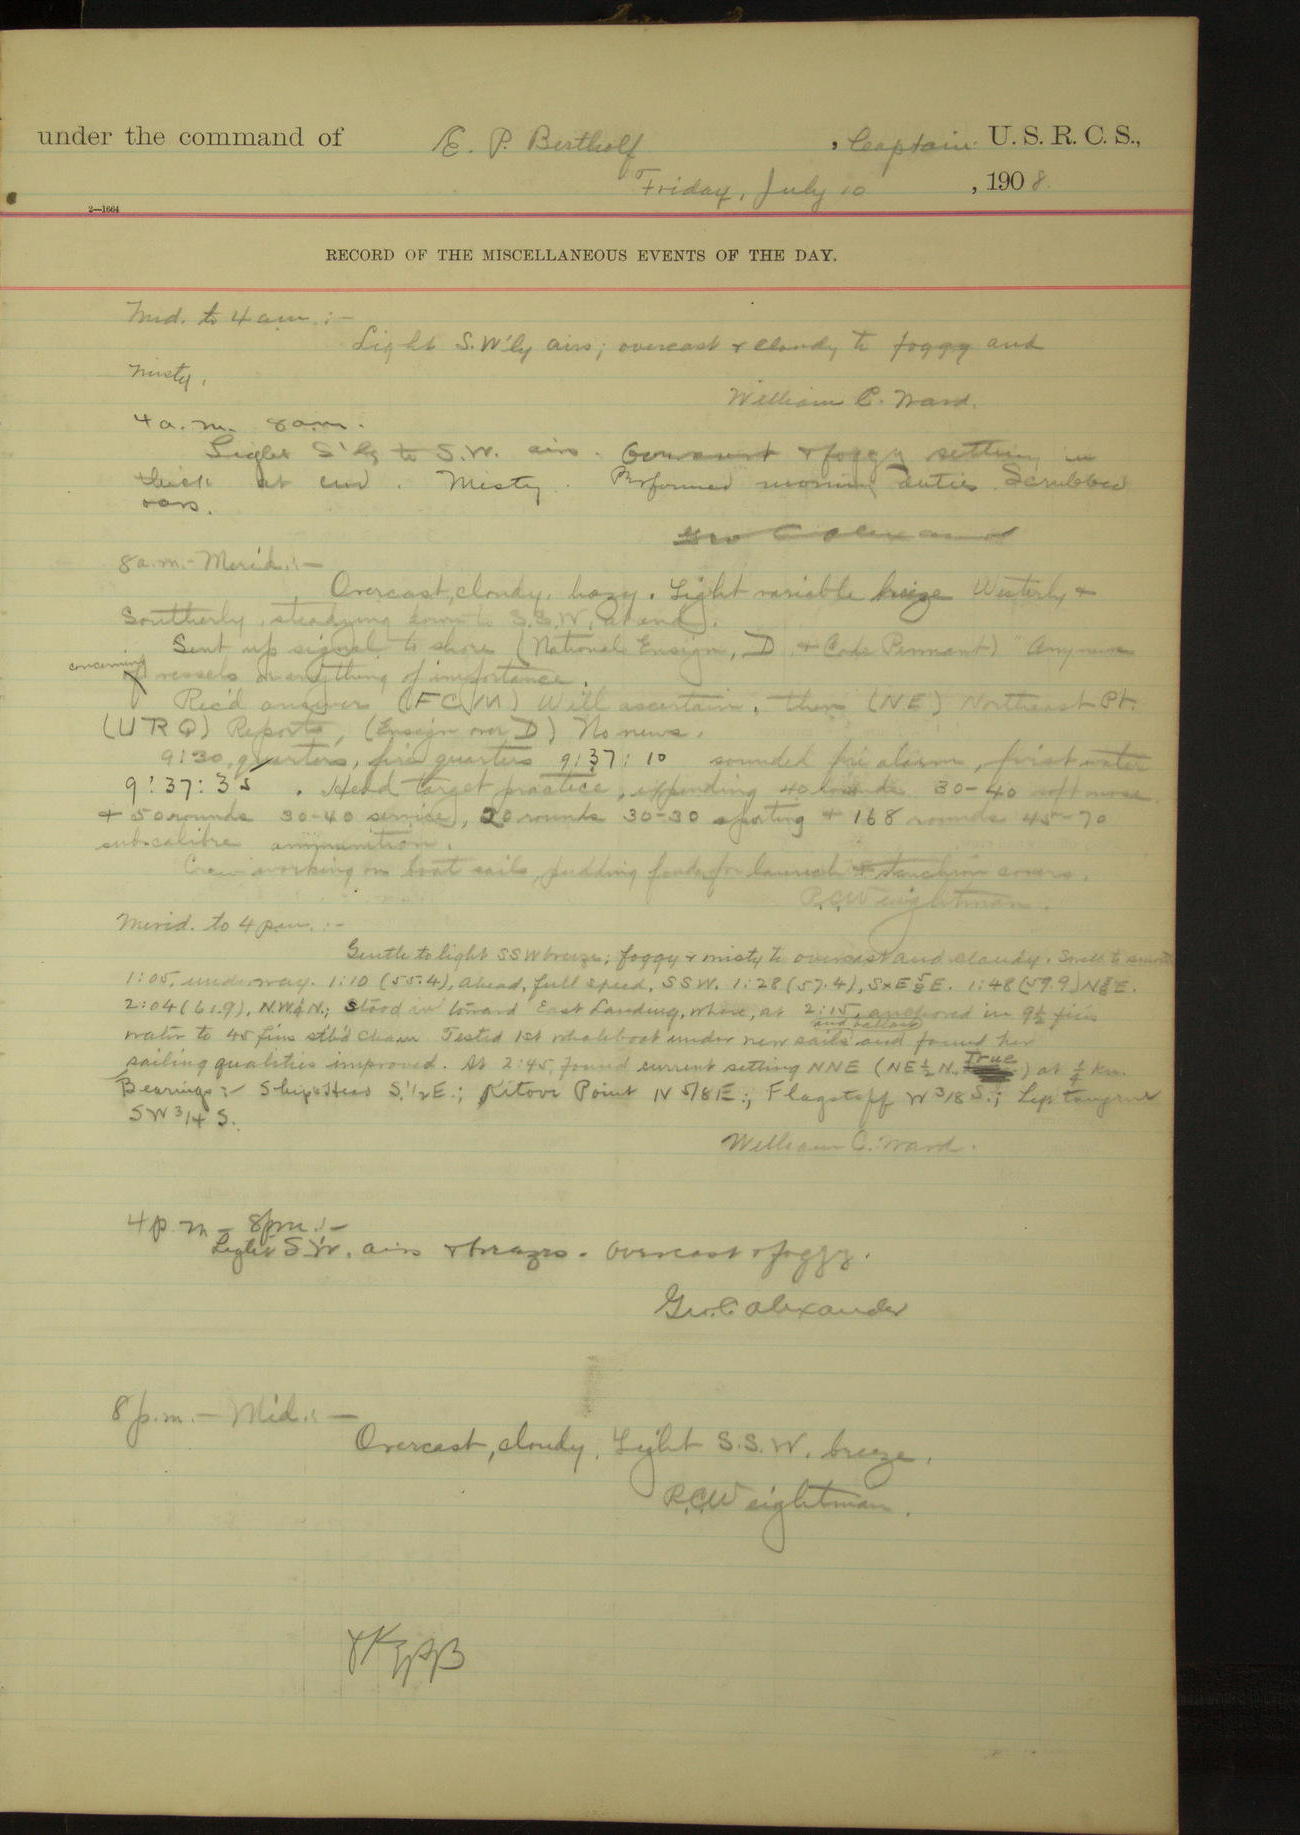 under the command of E. P. Bertholf, Captain U. S. R. C. S.,
Friday, July 10, 1908.
2—1664
RECORD OF THE MISCELLANEOUS EVENTS OF THE DAY.
Mid. to 4 am. :-
Light S.W'ly airs; overcast & cloudy to foggy and
misty.
William C. Ward.
4 a.m. 8 am.
Light S'ly to S.W. airs. Overcast & foggy setting in
thick at end. Misty. Performed morning duties. Scrubbed
Geo C Alexander
8 a.m.- Merid.:-
Overcast, cloudy, hazy. Light variable breeze Westerly &
Southerly, steadying down to S.S.W. at end.
Sent up signal to shore (National Ensign, D & Code Pennant) "Any news
concerning
of vessels or anything of importance.
Rec'd answer (FCM) Will ascertain, then (NE) Northeast Pt.
(URQ) Reports, (Ensign over D) No news.
9:30, quarters, fire quarters 9:37:10 sounded fire alarm, first water
9:37:35. Held target practice, expending 40 rounds 30-40 soft nose
+ 50 rounds 30-40 service, 20 rounds 30-30 sporting + 168 rounds 45-70
sub-calibre ammunition.
Crew working on boat sails, pudding fender for launch & stanchion covers.
R.C. Weightman.
Merid. to 4 p.m. :-
Gentle to light SSW breeze; foggy & misty to overcast and cloudy. Swell to smooth
1:05, underway. 1:10 (55.4), ahead, full speed, SSW. 1:28 (57.4), SxE 5/8 E. 1:48 (59.9) N 3/8 E.
2:04 (61.9), N.W. 1/2 N.; stood in toward East Landing, where, at 2:15, anchored in 9 1/2 fms
and ballast
water to 45 fms stb'd chain. Tested 1st whaleboat under new sails and found her
True
sailing qualities improved. At 2:45, found current setting NNE (NE 1/2 N. ) at 3/4 kn.
Bearings :- Ship's Head S. 1/2 E.; Kitovi Point N 5/8 E.; Flagstaff W 3/8 S.; Left tangent
SW 3/4 S.
William C. Ward.
4 p.m - 8 pm. :-
Light S.W. airs & breezes. Overcast & foggy.
Geo. C Alexander
8 p.m. - Mid. :-
Overcast, cloudy. Light S.S.W. breeze.
R.C. Weightman.